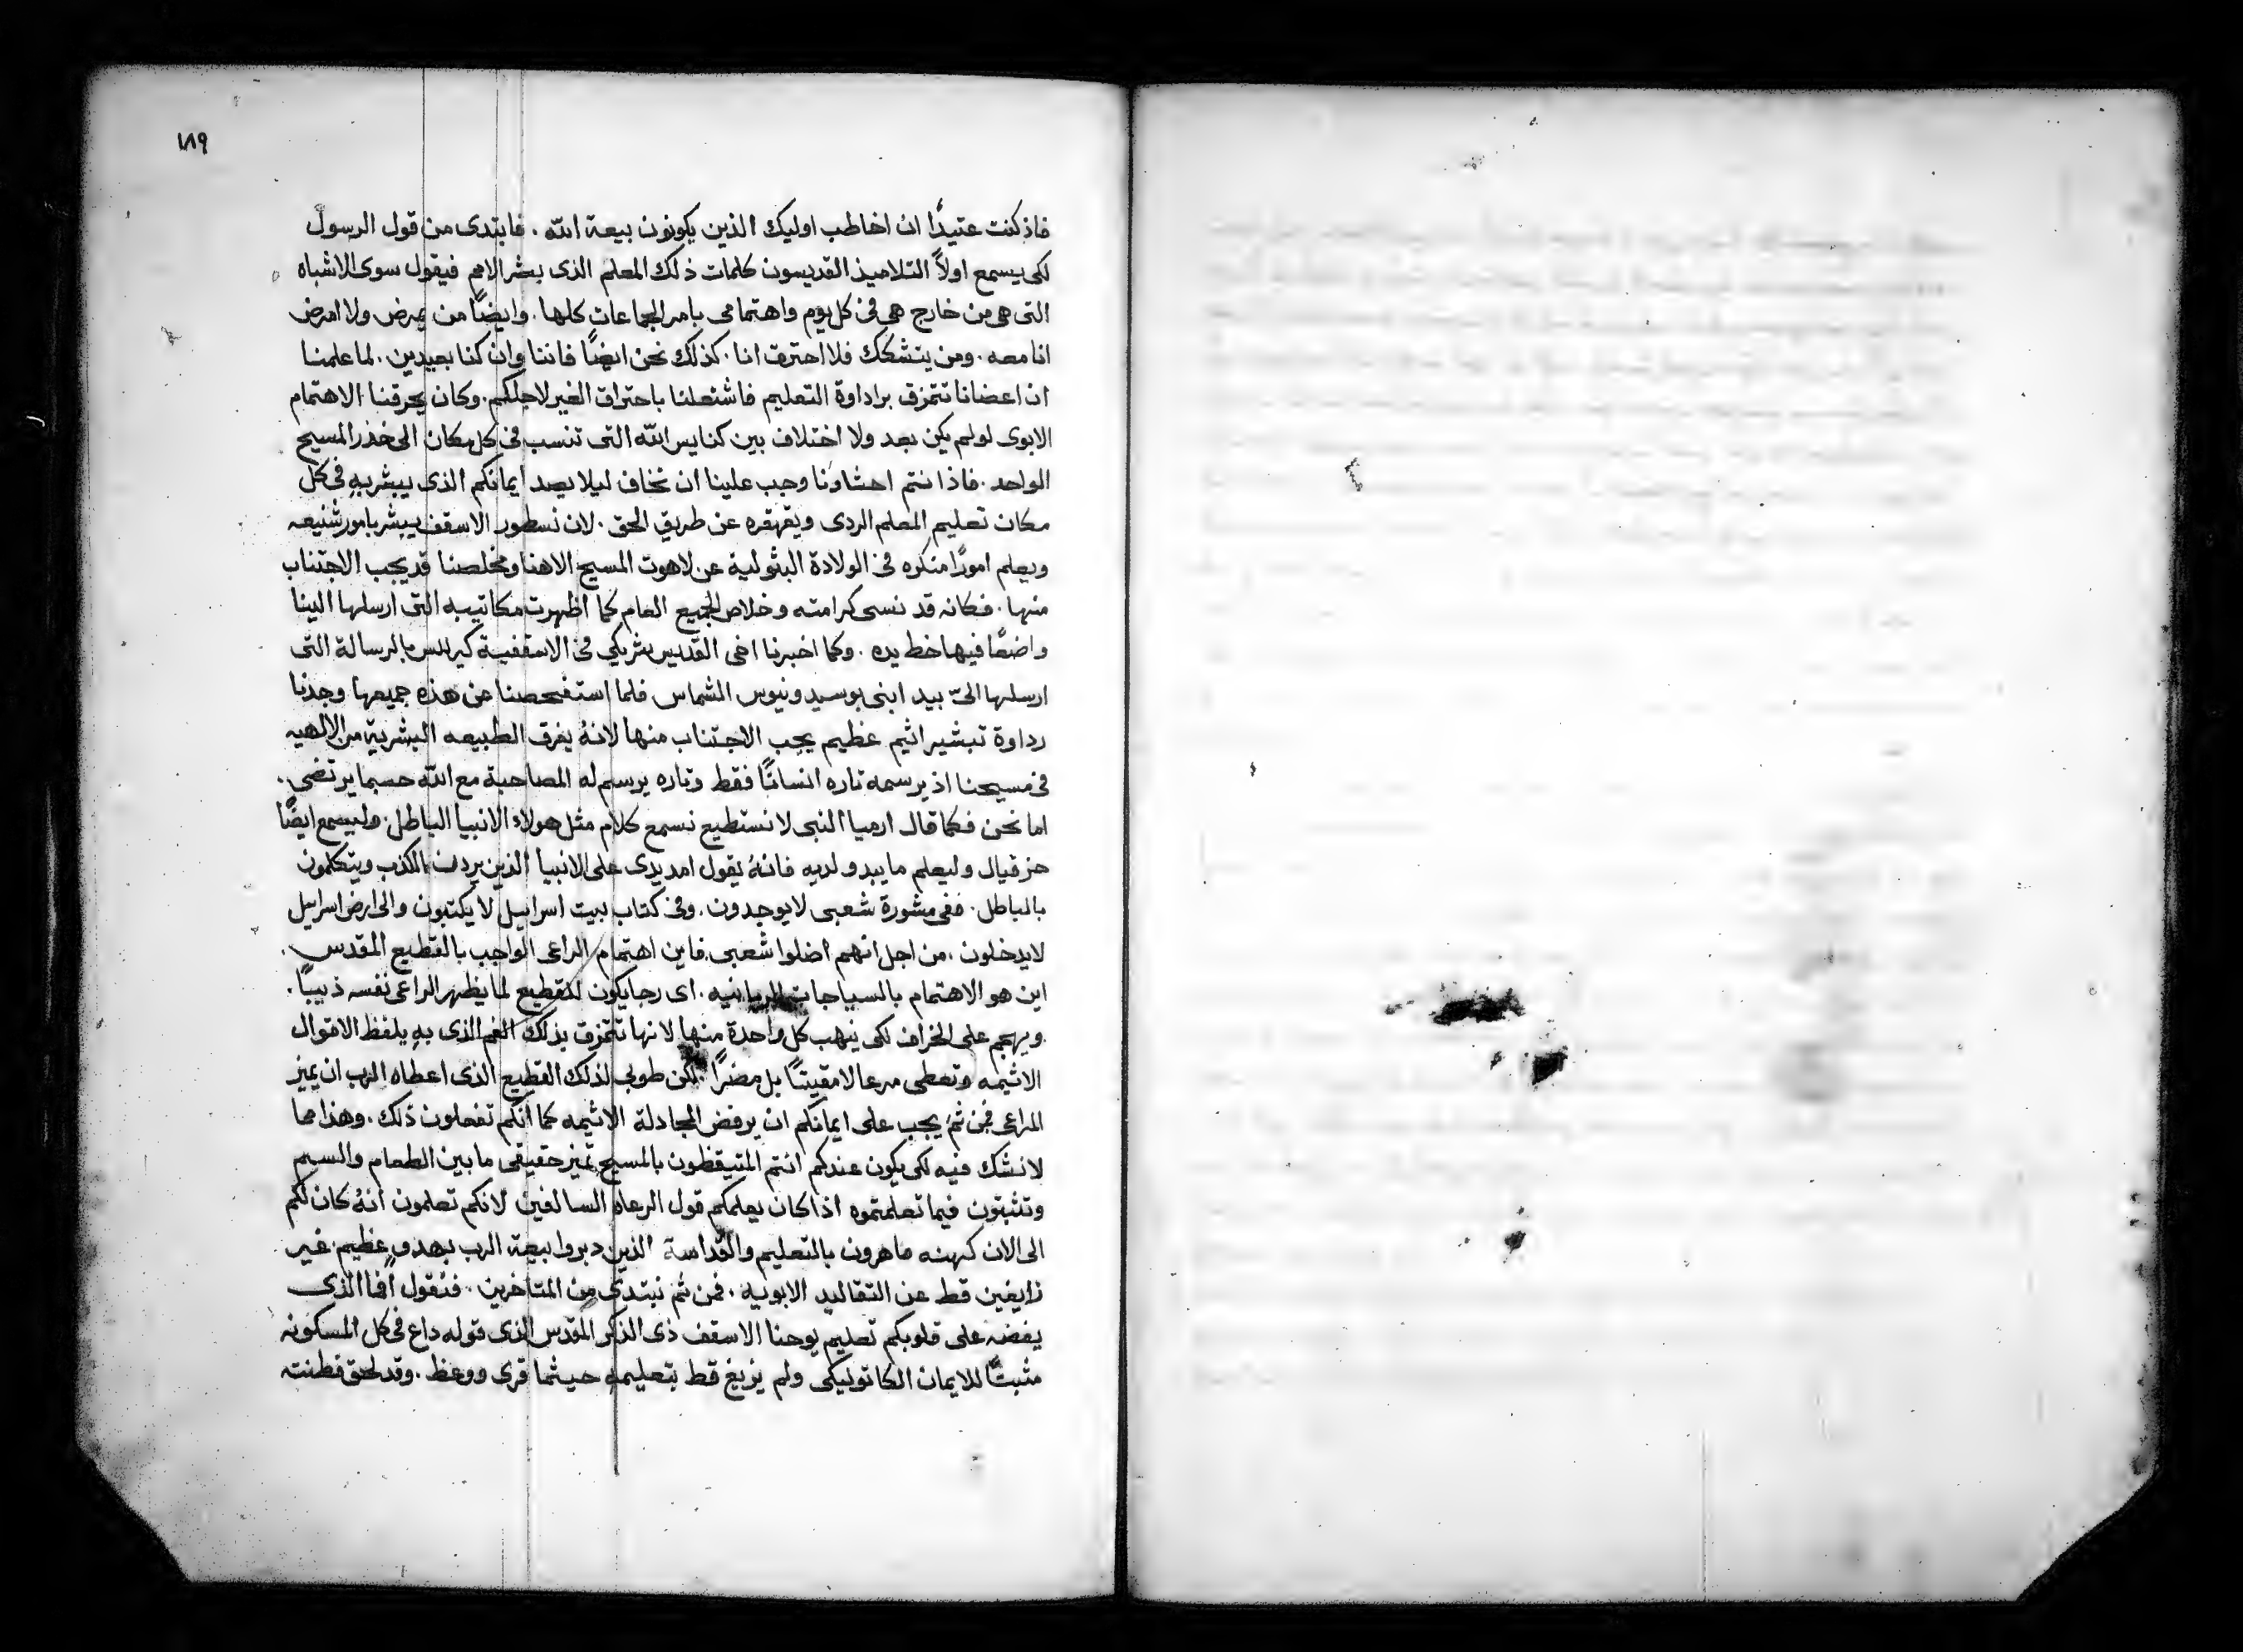 ١٨٩
فاذ كنت عتيدًا ان اخاطب اوليك الذين يكونون بيعة الله . فابتدى من قول الرسول
لكى يسمع اولاً التلاميذ القديسون كلمات ذلك المعلم الذى بشر الامم فيقول سوى الاشباه
التى هى من خارج هى فى كل يوم واهتمامى بامر الجماعات كلها . وايضًا من يمرض ولا امرض
انا معه . ومن يتشكك فلا احترق انا . كذلك نحن ايضًا فاننا وان كنا بعيدين . لما علمنا
ان اعضانا تتمزق براداوة التعليم فاشتعلنا باحتراق الغير لاجلكم . وكان يحرقنا الاهتمام
الابوى لو لم يكن بعد ولا اختلاف بين كنايس الله التى تنسب فى كل مكان الى خذر المسيح
الواحد . فاذ انتم احشاونا وجب علينا ان نخاف ليلا يصد ايمانكم الذى يبشر به فى كل
مكان تعليم المعلم الردى ويقهقره عن طريق الحق . لان نسطور الاسقف يبشر بامور شنيعه
ويعلم امورًا منكره فى الولادة البثولية عن لاهوت المسيح الاهنا ومخلصنا قد يجب الاجتناب
منها . فكانه قد نسى كرامته وخلاص الجميع العام كما اظهرت مكاتيبه التى ارسلها الينا
واضعًا فيها خط يده . وكما اخبرنا اخى القديس شريكى فى الاسقفية كيرلس بالرسالة التى
ارسلها الىّ بيد ابنى بوسيدونيوس الشماس فلما استفحصنا عن هذه جميعها وجدنا
رداوة تبشير اثيم عظيم يجب الاجتناب منها لانهُ يفرق الطبيعه البشرية من الالهيه
فى مسيحنا اذ يرسمه تاره انسانًا فقط وتاره يرسم له المصاحبة مع الله حسبما يرتضى .
اما نحن فكما قال ارميا النبى لا نستطيع نسمع كلام مثل هولاء الانبيا الباطل . وليسمع ايضًا
حزقيال وليعلم ما يبدو لديه فانهُ يقول امد يدى على الانبيا الذين يردن الكذب ويتكلمون
بالباطل . ففى مشورة شعبى لا يوجدون . وفى كتاب بيت اسراييل لا يكتبون والى ارض اسراييل
لا يدخلون . من اجل انهم اضلوا شعبى . فاين اهتمام الراعى الواجب بالقطيع المقدس .
اين هو الاهتمام بالسياجات الربانيه . اى رجا يكون للقطيع لما يظهر الراعى نفسه ذيبًا .
ويهجم على الخراف لكى ينهب كل واحدة منها لانها تتمزق بذلك الفم الذى به يلفظ الاقوال
الاثيمه وتعطى مرعا لا مقيتًا بل مضرًا . لكن طوبى لذلك القطيع الذى اعطاه الرب ان يميز
المراعى فمن ثمَ يجب على ايمانكم ان يرفض المجادلة الاثيمه كما انكم تفعلون ذلك . وهذا مما
لا نشك فيه لكى يكون عندكم انتم المتيقظون بالمسيح تميز حقيقى ما بين الطعام والسم
وتثبتون فيما تعلمتموه اذا كان يعلمكم قول الرعاه السالفين لانكم تعلمون انهُ كان لكم
الى الان كهنه ماهرون بالتعليم والقداسة الذين دبروا بيعة الرب بهدو عظيم . غير
زايغين قط عن التقاليد الابويه . فمن ثم نبتدى من المتاخرين . فنقول افما الذى
يفضه على قلوبكم تعليم يوحنا الاسقف ذى الذكر المقدس الذى قوله داع فى كل المسكونه
مثبتًا للايمان الكاتوليكى ولم يزيغ قط بتعليمه حيثما قرى ووعظ . وقد لحق فطنته